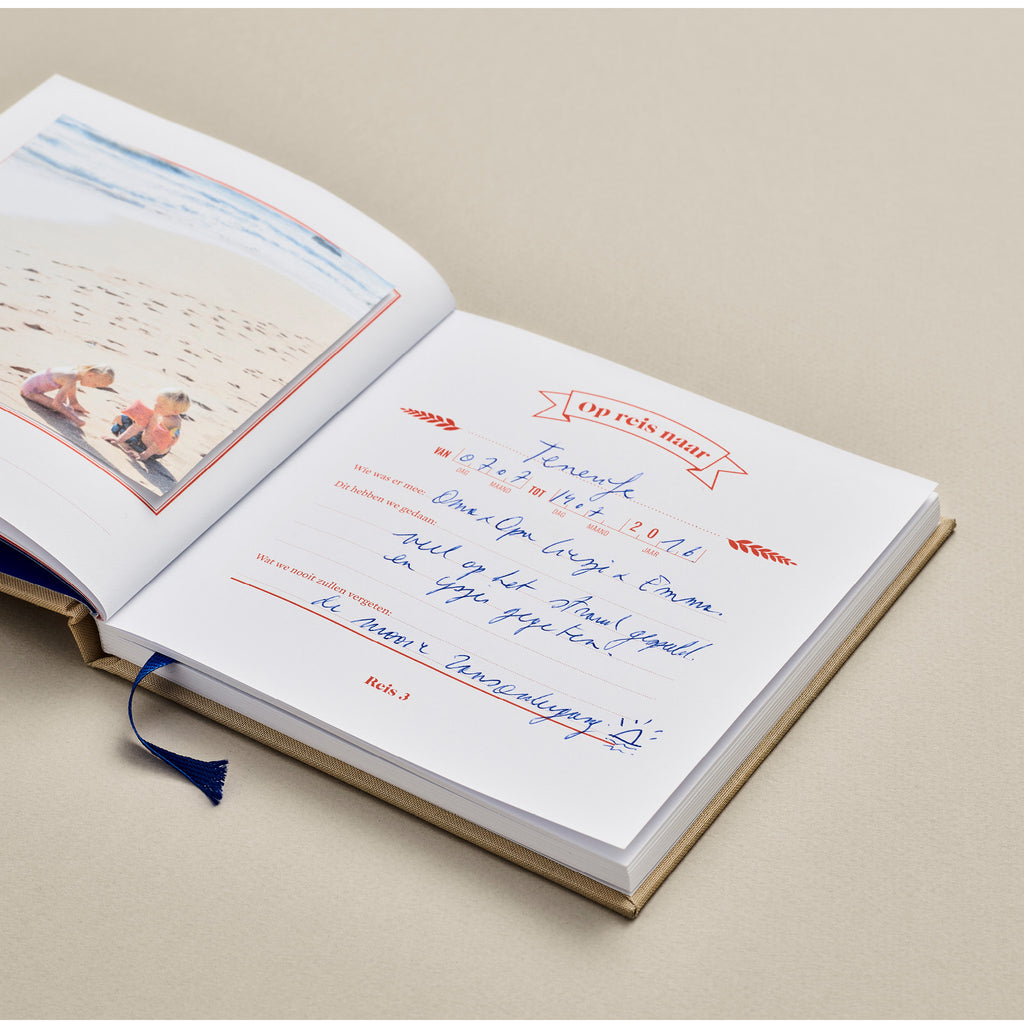 Op reis naar
Tenerife
VAN 0 7 0 7 TOT 1 4 0 7 2 0 1 6
DAG MAAND DAG MAAND JAAR
Wie was er mee: Oma & Opa Liezje & Emma.
Dit hebben we gedaan:
veel op het strand gespeeld.
en ijsjes gegeten.
Wat we nooit zullen vergeten:
de mooie zonsondergang
Reis 3